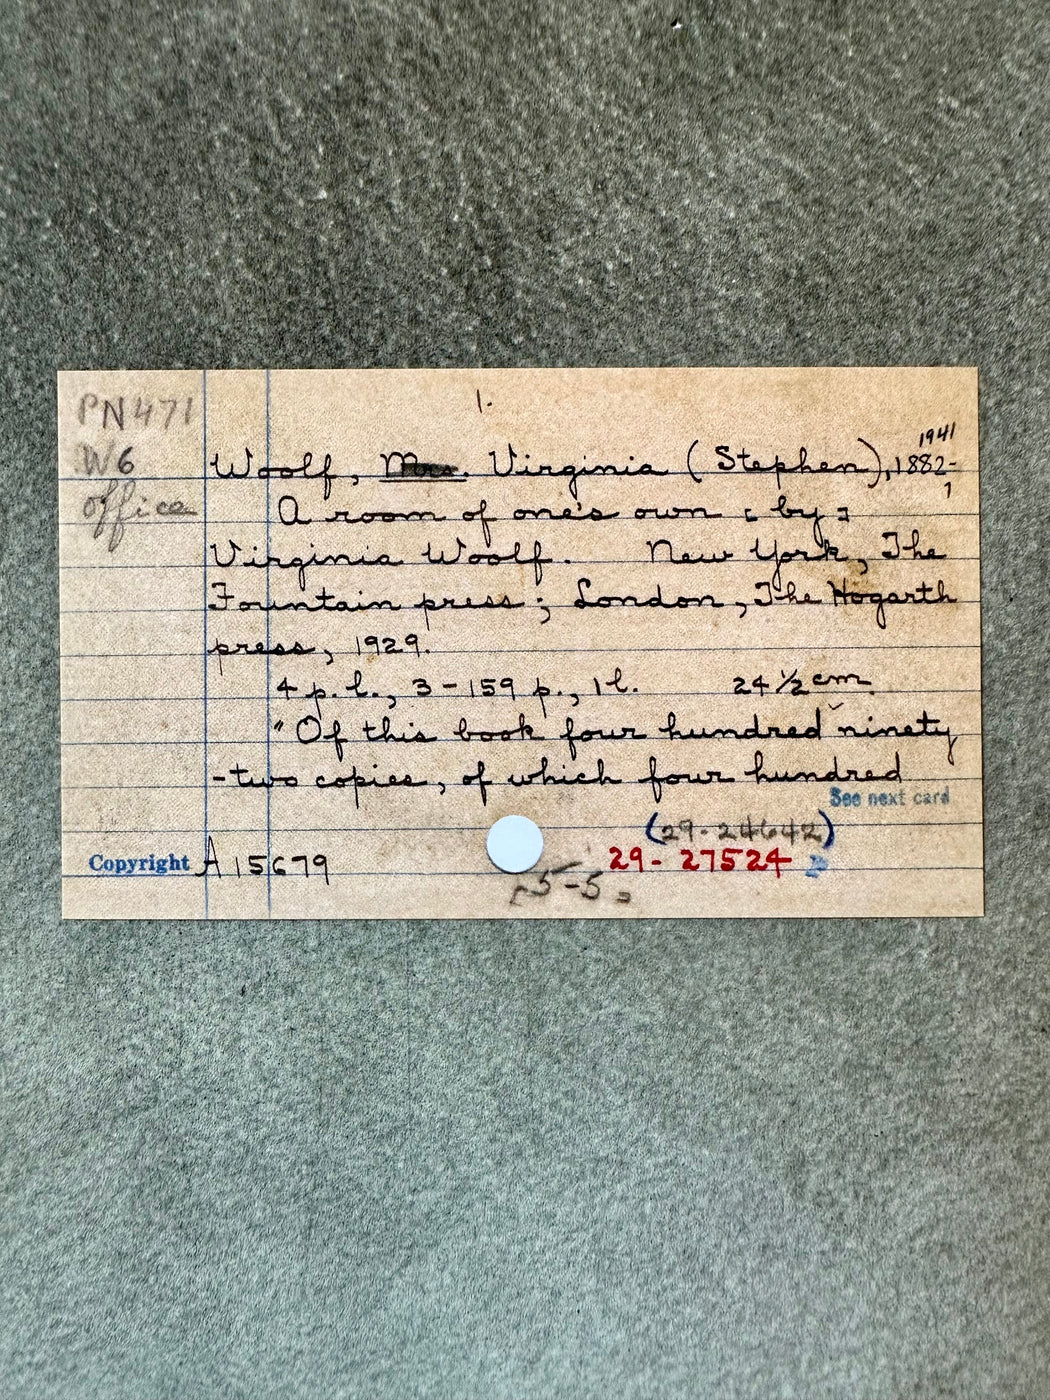 1.
PN471
W6
office
1941
Woolf, Mrs. Virginia (Stephen), 1882-
A room of one's own [by]
Virginia Woolf. New York, The
Fountain press; London, The Hogarth
press, 1929.
4 p. l., 3-159 p., 1 l. 24 1/2 cm.
"Of this book four hundred ninety
-two copies, of which four hundred
See next card
(29-24642)
Copyright A 15679
29-27524
[5-5]